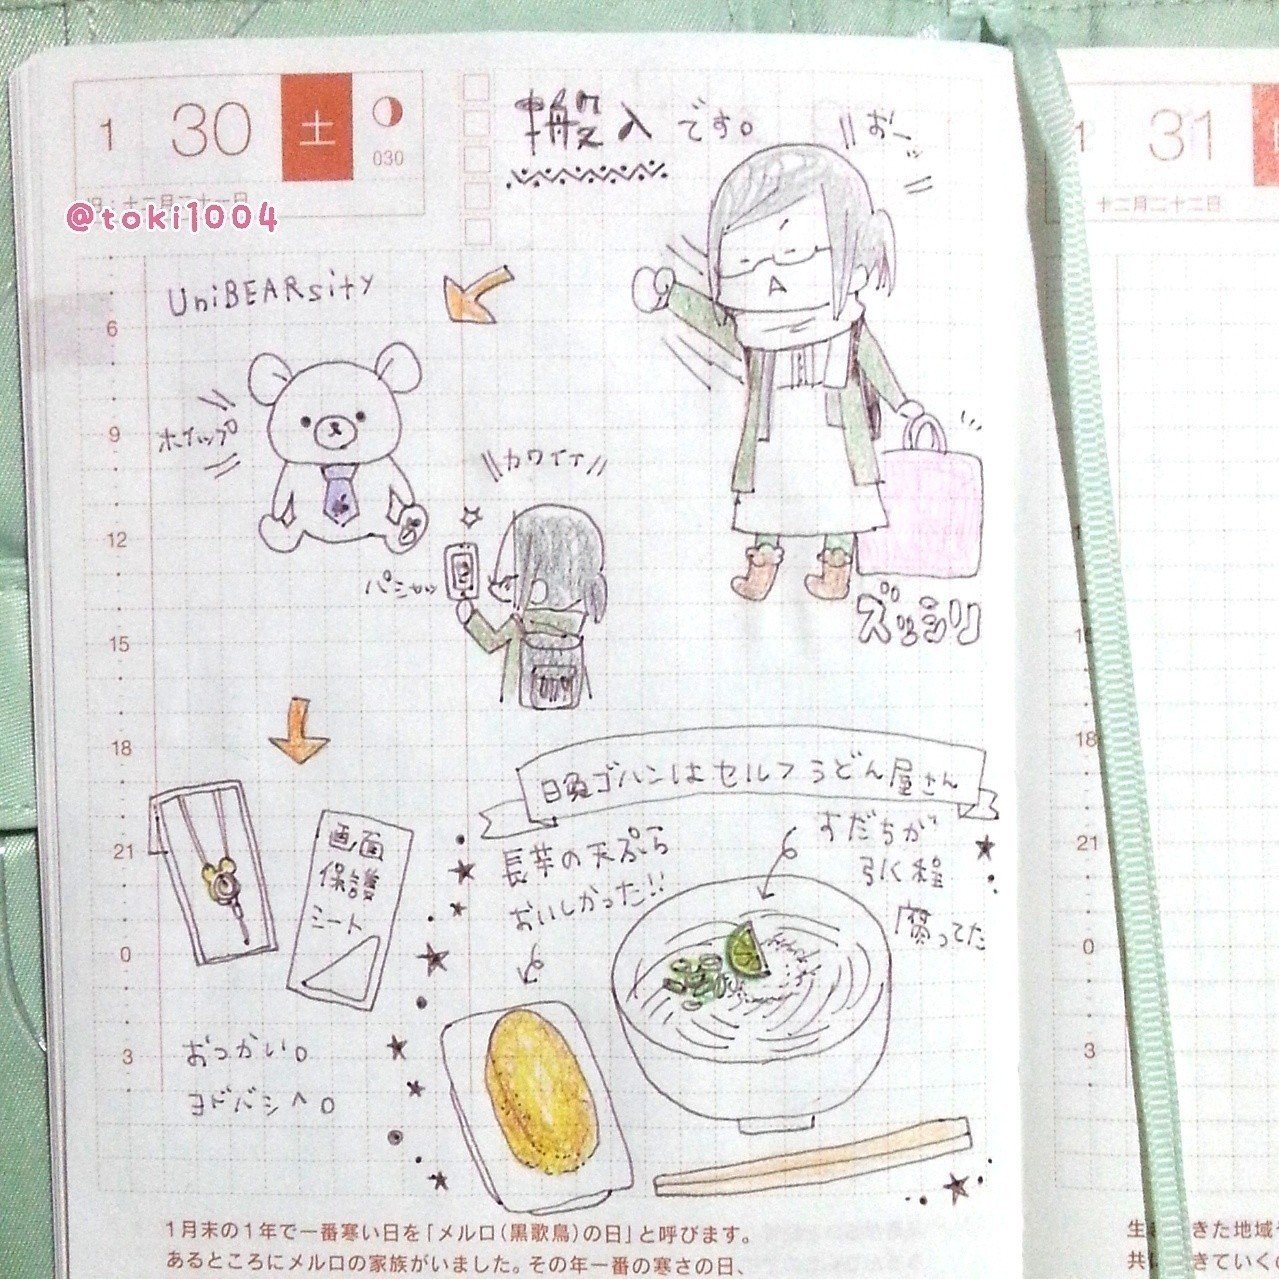 1 30 土
030
旧:十二月二十一日
@toki1004
搬入です。
おーッ
UniBEARsity
ホイップ
カワイイ
パシャッ
ズッシリ
6
9
12
15
18
21
0
3
画面
保護
シート
おつかい。
ヨドバシへ。
晩ゴハンはセルフうどん屋さん
長芋の天ぷら
おいしかった!!
すだちが
引く程
腐ってた
1月末の1年で一番寒い日を「メルロ(黒歌鳥)の日」と呼びます。
あるところにメルロの家族がいました。その年一番の寒さの日、
1 31
十二月二十二日
18
21
0
3